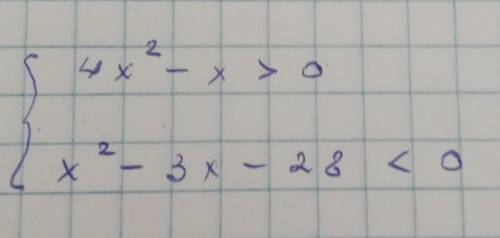 4x² - x > 0
x² - 3x - 28 < 0